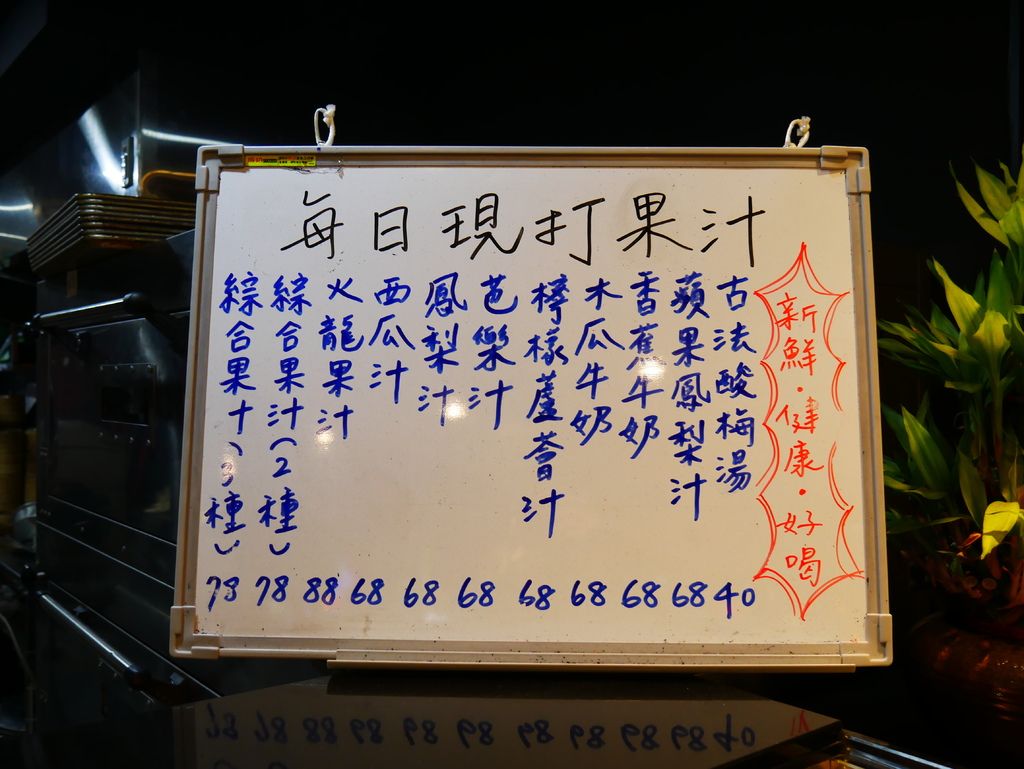 每日現打果汁
新鮮·健康·好喝
古法酸梅湯 40
蘋果鳳梨汁 68
香蕉牛奶 68
木瓜牛奶 68
檸檬蘆薈汁 68
芭樂汁 68
鳳梨汁 68
西瓜汁 68
火龍果汁 88
綜合果汁(2種) 78
綜合果汁(3種) 78